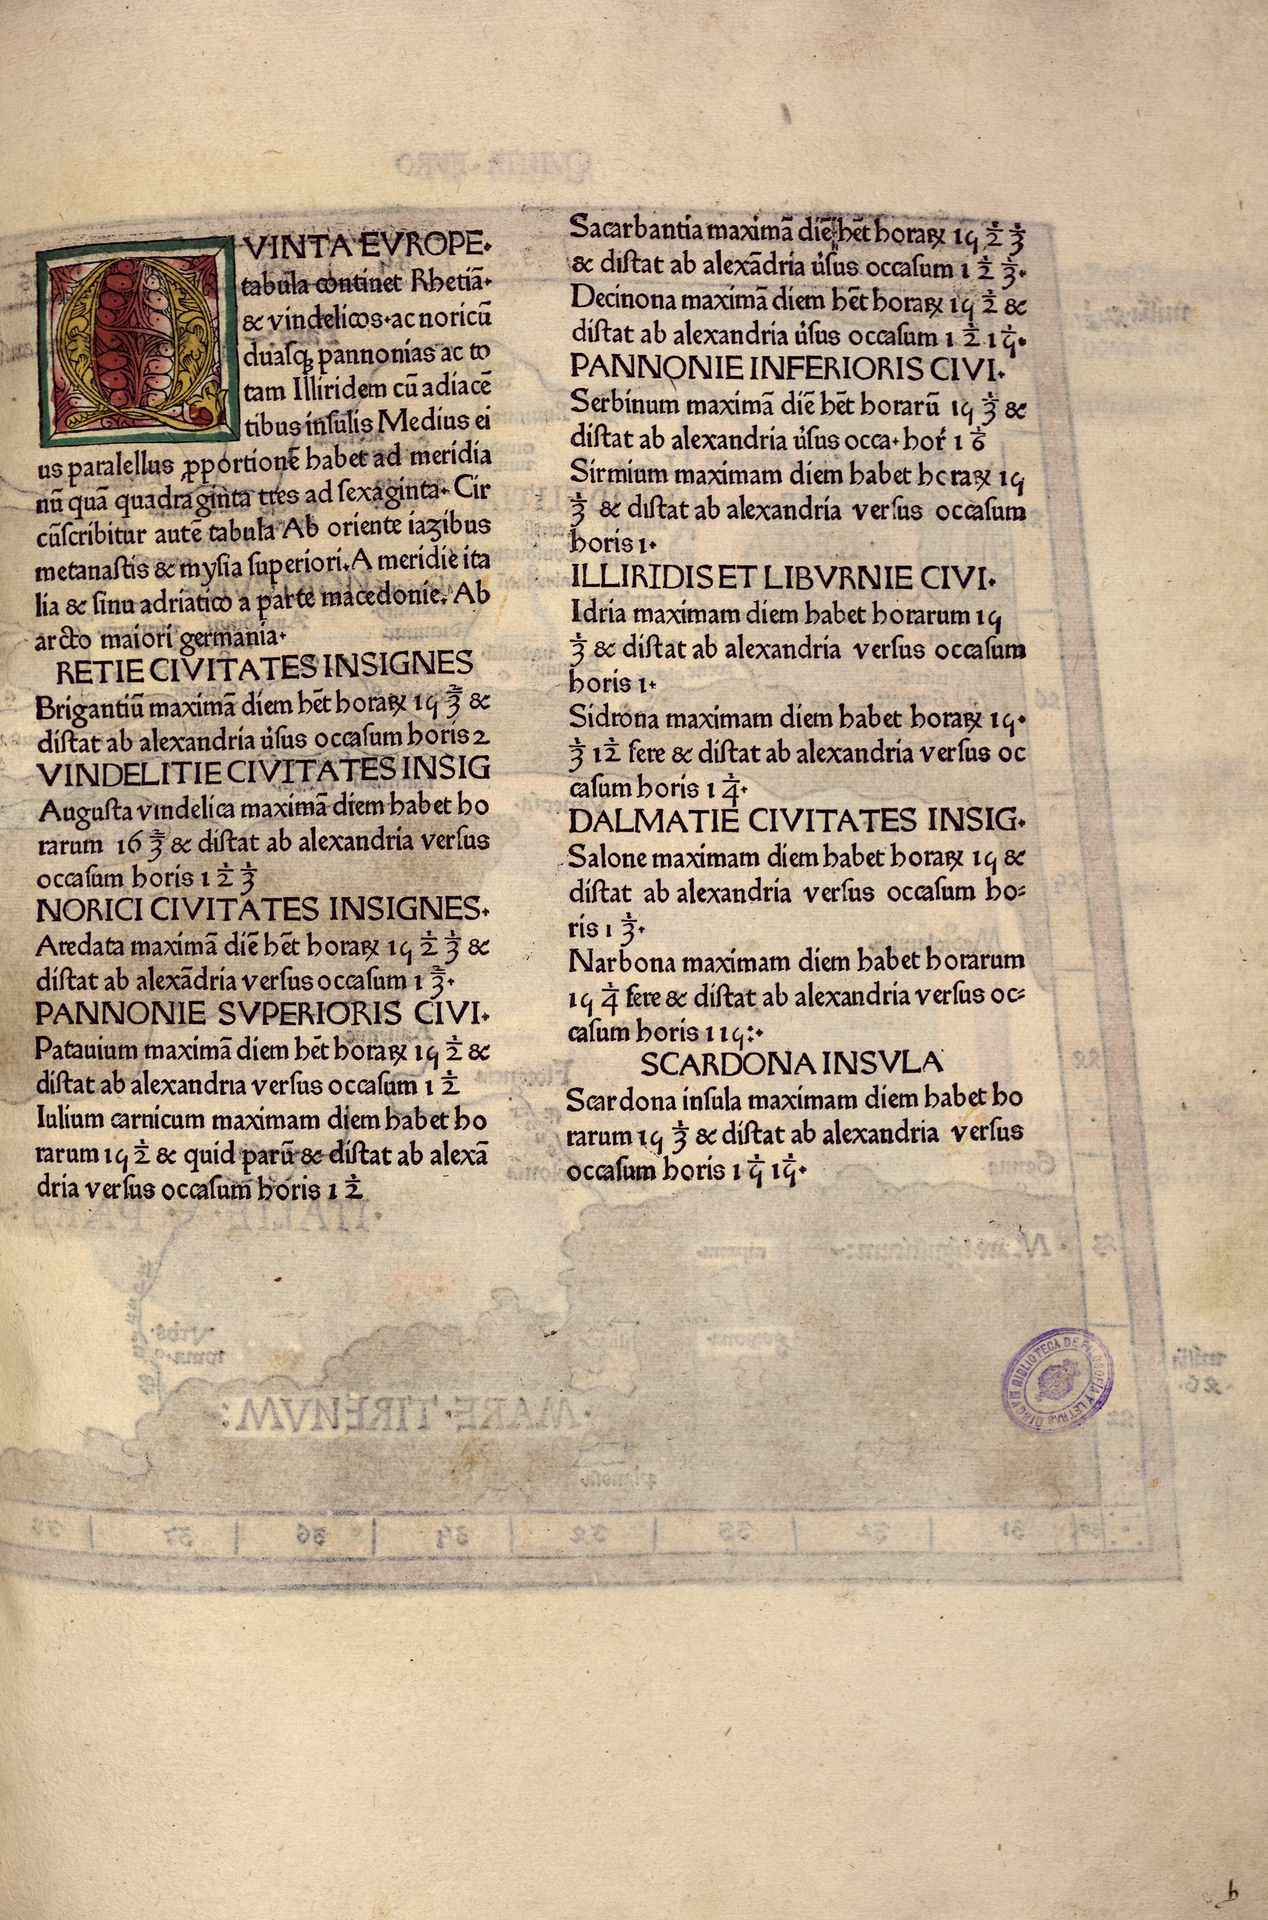 QVINTA EVROPE·
tabula continet Rhetiā·
& vindelicos·ac noricū
duasqꝫ pannonias ac to
tam Illiridem cū adiacē
tibus insulis Medius ei
us paralellus ꝓportionē habet ad meridia
nū quā quadraginta tres ad sexaginta· Cir
cūscribitur autē tabula Ab oriente iazibus
metanastis & mysia superiori.A meridie ita
lia & sinu adriatico a parte macedonie. Ab
arcto maiori germania·
RETIE CIVITATES INSIGNES
Brigantiū maximā diem hēt horaꝝ 15 ⅔ &
distat ab alexandria u᷑sus occasum horis 2
VINDELITIE CIVITATES INSIG
Augusta vindelica maximā diem habet ho
rarum 16 ⅔ & distat ab alexandria versus
occasum horis 1 ½ ⅓
NORICI CIVITATES INSIGNES·
Aredata maximā diē hēt horaꝝ 15 ½ ⅓ &
distat ab alexādria versus occasum 1 ⅔·
PANNONIE SVPERIORIS CIVI·
Patauium maximā diem hēt horaꝝ 15 ½ &
distat ab alexandria versus occasum 1 ½
Iulium carnicum maximam diem habet ho
rarum 15 ½ & quid parū & distat ab alexā
dria versus occasum horis 1 ½
Sacarbantia maximā diē hēt horaꝝ 15 ½ ⅓
& distat ab alexādria u᷑sus occasum 1 ½ ⅓·
Decinona maximā diem hēt horaꝝ 15 ½ &
distat ab alexandria u᷑sus occasum 1 ½ 1⅕·
PANNONIE INFERIORIS CIVI·
Serbinum maximā diē hēt horarū 15 ⅓ &
distat ab alexandria u᷑sus occa· hor᷑ 1 ⅙
Sirmium maximam diem habet horaꝝ 15
⅓ & distat ab alexandria versus occasum
horis 1·
ILLIRIDIS ET LIBVRNIE CIVI·
Idria maximam diem habet horarum 15
⅓ & distat ab alexandria versus occasum
horis 1·
Sidrona maximam diem habet horaꝝ 15·
⅓ 1½ fere & distat ab alexandria versus oc
casum horis 1 ¼·
DALMATIE CIVITATES INSIG·
Salone maximam diem habet horaꝝ 15 &
distat ab alexandria versus occasum ho⸗
ris 1 ⅓·
Narbona maximam diem habet horarum
15 ¼ fere & distat ab alexandria versus oc⸗
casum horis 1 15:·
SCARDONA INSVLA
Scardona insula maximam diem habet ho
rarum 15 ⅓ & distat ab alexandria versus
occasum horis 1 ⅕ 1⅕·
BIBLIOTECA DE FILOSOFIA Y LETRAS MADRID